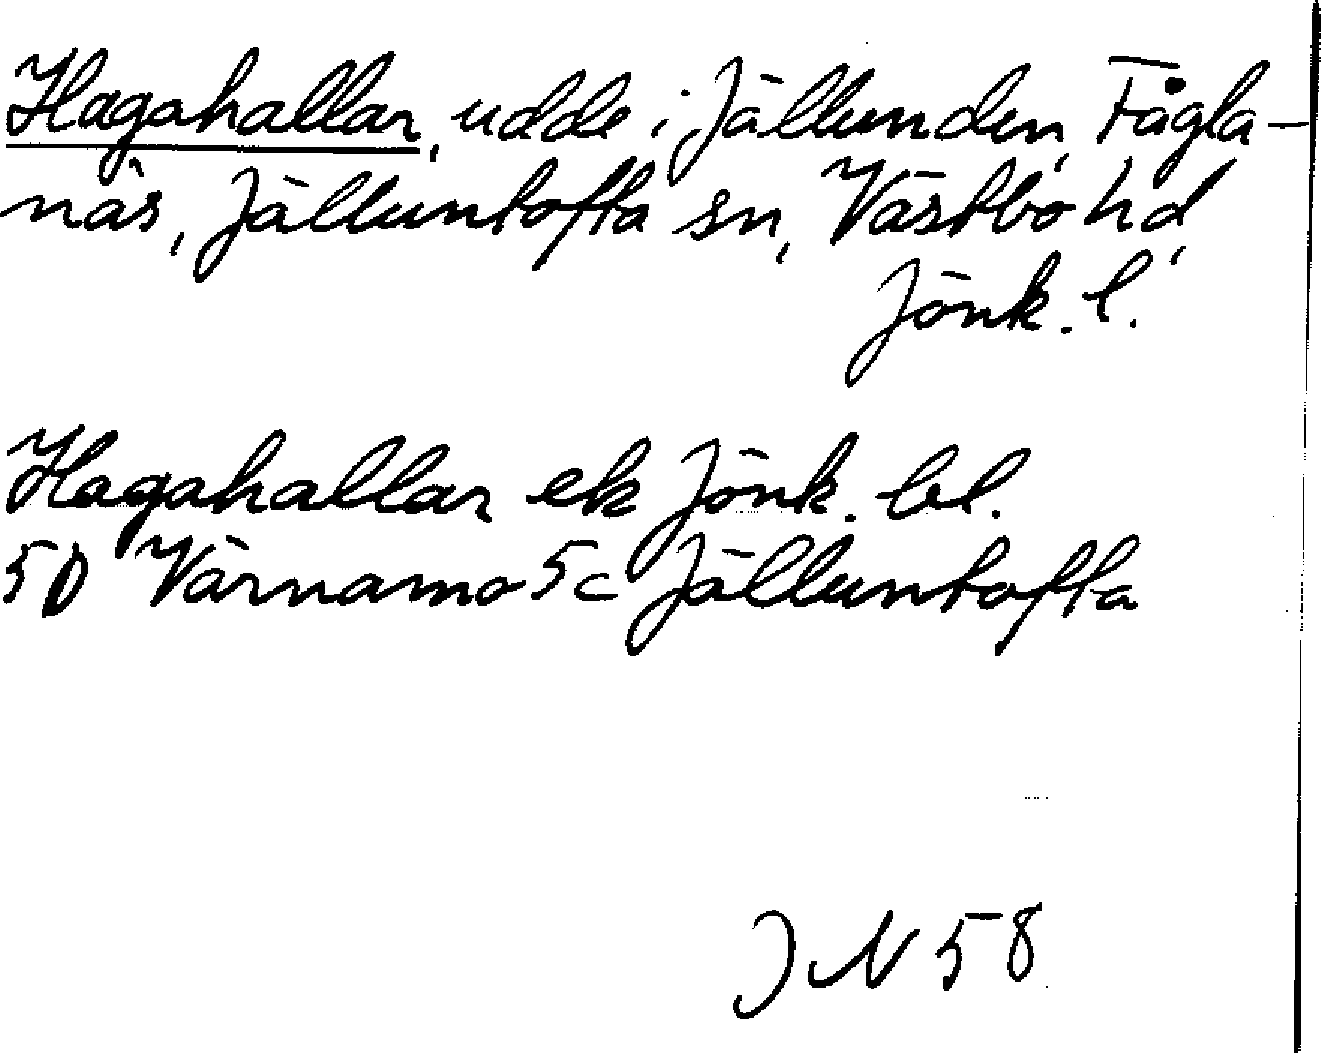 Hagahallar, udde i Jällunden, Fågla-
näs, Jälluntofta sn, Västbo hd,
Jönk. l.
Hagahallar ek Jönk. bl.
5D Värnamo 5c Jälluntofta
JN 58